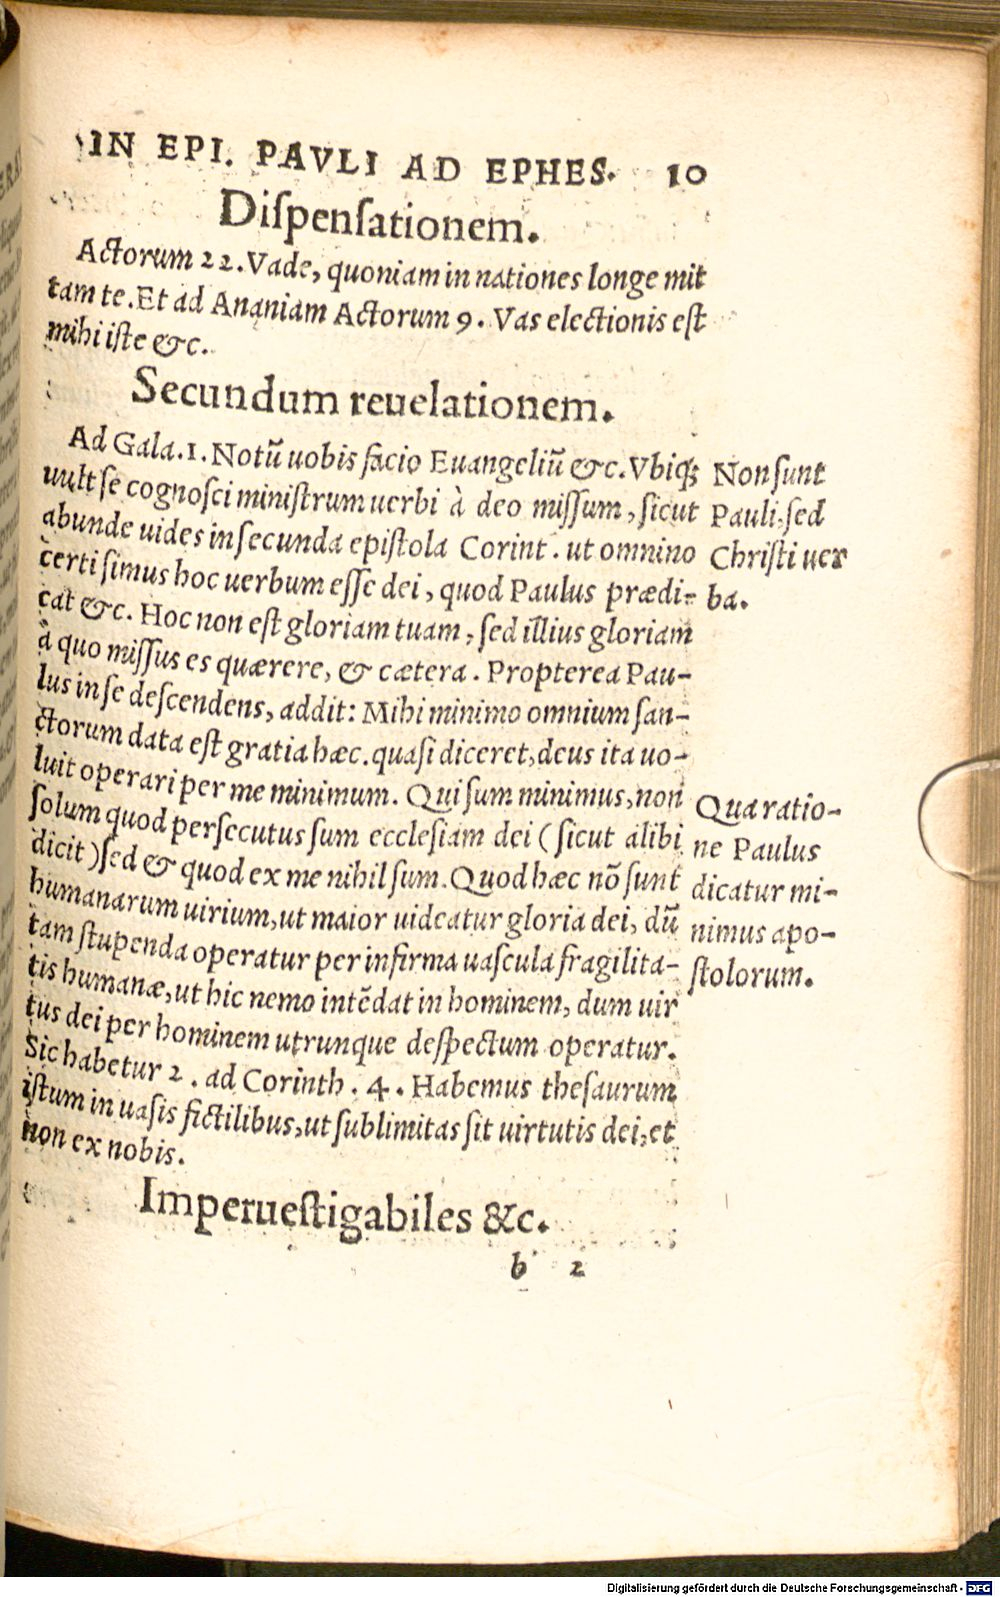 IN EPI. PAVLI AD EPHES. 10
Diſpenſationem.
Actorum 22. Vade, quoniam in nationes longe mit
tam te. Et ad Ananiam Actorum 9. Vas electionis eſt
mihi iſte &c.
Secundum reuelationem.
Ad Gala. 1. Notũ uobis facio Euangeliũ &c. Vbiq;
uult ſe cognoſci miniſtrum uerbi à deo miſſum, ſicut
abunde uides in ſecunda epiſtola Corint. ut omnino
certiſimus hoc uerbum eſſe dei, quod Paulus prædi-
cat &c. Hoc non eſt gloriam tuam, ſed illius gloriam
à quo miſſus es quærere, & cætera. Propterea Pau-
lus in ſe deſcendens, addit: Mihi minimo omnium ſan-
ctorum data eſt gratia hæc. quaſi diceret, deus ita uo-
luit operari per me minimum. Qui ſum minimus, non
ſolum quod perſecutus ſum eccleſiam dei (ſicut alibi
dicit) ſed & quod ex me nihil ſum. Quod hæc nõ ſunt
humanarum uirium, ut maior uideatur gloria dei, dũ
tam ſtupenda operatur per infirma uaſcula fragilita-
tis humanæ, ut hic nemo intẽdat in hominem, dum uir
tus dei per hominem utrunque deſpectum operatur.
Sic habetur 2. ad Corinth. 4. Habemus theſaurum
iſtum in uaſis fictilibus, ut ſublimitas ſit uirtutis dei, et
non ex nobis.
Imperueſtigabiles &c.
b 2
Non ſunt
Pauli, ſed
Chriſti uer
ba.
Qua ratio-
ne Paulus
dicatur mi-
nimus apo-
ſtolorum.
Digitalisierung gefördert durch die Deutsche Forschungsgemeinschaft - DFG